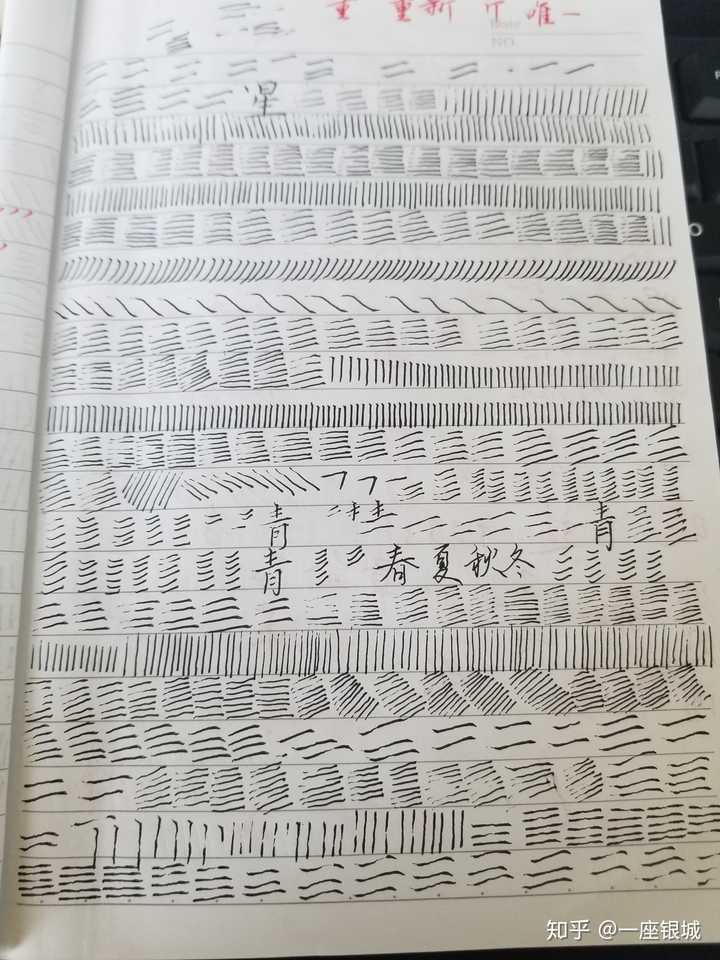 重 重新 唯一
NO.
星
青 青
青 春夏秋冬
知乎 @一座银城